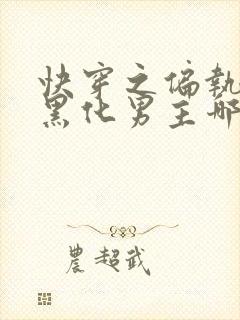 快穿之偏执
黑化男主哪
農超武